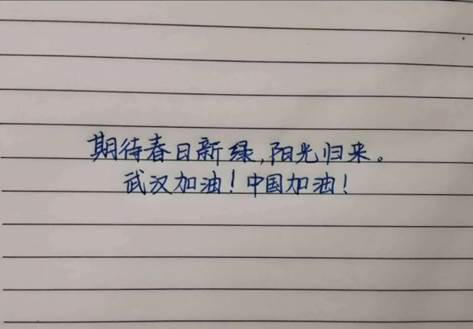 期待春日新绿,阳光归来。
武汉加油!中国加油!